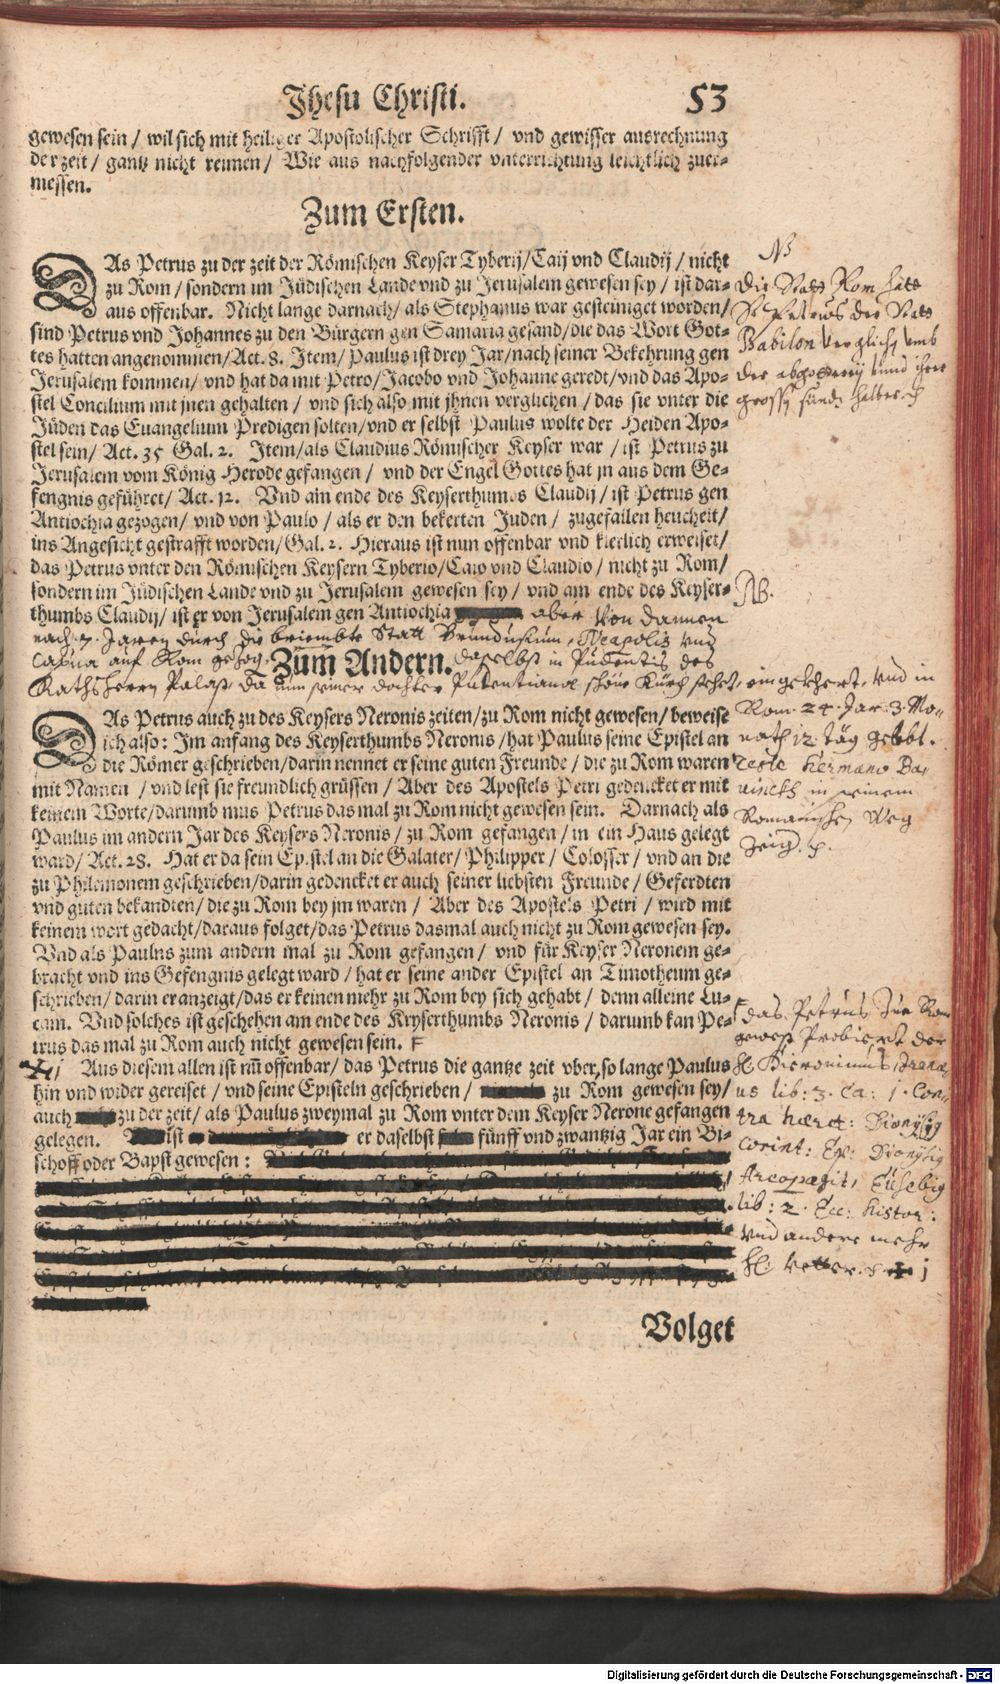 Jhesu Christi. 53
gewesen sein / wil sich mit heiliger Apostolischer Schrifft / vnd gewisser ausrechnung
der zeit / gantz nicht reimen / Wie aus nachfolgender vnterrichtung leichtlich zuer-
messen.
Zum Ersten.
DAs Petrus zu der zeit der Römischen Keyser Tyberij / Caij vnd Claudij / nicht
zu Rom / sondern im Jüdischen Lande vnd zu Jerusalem gewesen sey / ist dar-
aus offenbar. Nicht lange darnach / als Stephanus war gesteiniget worden /
sind Petrus vnd Johannes zu den Bürgern gen Samaria gesand / die das Wort Got-
tes hatten angenommen / Act. 8. Item / Paulus ist drey Jar / nach seiner Bekehrung gen
Jerusalem kommen / vnd hat da mit Petro / Jacobo vnd Johanne geredt / vnd das Apo-
stel Concilium mit jnen gehalten / vnd sich also mit jhnen verglichen / das sie vnter die
Jüden das Euangelium Predigen solten / vnd er selbst Paulus wolte der Heiden Apo-
stel sein / Act. 35 Gal. 2. Item / als Claudius Römischer Keyser war / ist Petrus zu
Jerusalem vom König Herode gefangen / vnd der Engel Gottes hat jn aus dem Ge-
fengnis geführet / Act. 12. Vnd am ende des Keyserthumbs Claudij / ist Petrus gen
Antiochia gezogen / vnd von Paulo / als er den bekerten Juden / zugefallen heuchelt /
ins Angesicht gestrafft worden / Gal. 2. Hieraus ist nun offenbar vnd klerlich erweiset /
das Petrus vnter den Römischen Keysern Tyberio / Caio vnd Claudio / nicht zu Rom /
sondern im Jüdischen Lande vnd zu Jerusalem gewesen sey / vnd am ende des Keyser-
thumbs Claudij / ist er von Jerusalem gen Antiochia aber von dannen
nach 7 Jaren durch die beriembte Statt Brundusium, Neapolis vnd
Capua auf Rom gezog. daselbst in Pudentis des
Zum Andern.
Rathsherrn Palast, da nun seiner dochter Pudentianae schöne Kürch stehet, eingekhert, vnd in
Rom. 24. Jar. 3. Mo-
nath 12. täg gelebt.
teste Hermano
in seinem
Romanischen Weg
DAs Petrus auch zu des Keysers Neronis zeiten / zu Rom nicht gewesen / beweise
ich also: Im anfang des Keyserthumbs Neronis / hat Paulus seine Epistel an
die Römer geschrieben / darin nennet er seine guten Freunde / die zu Rom waren
mit Namen / vnd lest sie freundlich grüssen / Aber des Apostels Petri gedencket er mit
keinem Worte / darumb mus Petrus das mal zu Rom nicht gewesen sein. Darnach als
Paulus im andern Jar des Keysers Neronis / zu Rom gefangen / in ein Haus gelegt
ward / Act. 28. Hat er da sein Epistel an die Galater / Philipper / Colosser / vnd an die
zu Philemonem geschrieben / darin gedencket er auch seiner liebsten Freunde / Geferdten
vnd guten bekandten / die zu Rom bey jm waren / Aber des Apostels Petri / wird mit
keinem wort gedacht / daraus folget / das Petrus dasmal auch nicht zu Rom gewesen sey.
Vnd als Paulus zum andern mal zu Rom gefangen / vnd für Keyser Neronem ge-
bracht vnd ins Gefengnis gelegt ward / hat er seine ander Epistel an Timotheum ge-
schrieben / darin er anzeigt / das er keinen mehr zu Rom bey sich gehabt / denn alleine Lu-
cam. Vnd solches ist geschehen am ende des Kryserthumbs Neronis / darumb kan Pe-
trus das mal zu Rom auch nicht gewesen sein. F
Aus diesem allen ist nu offenbar / das Petrus die gantze zeit vber / so lange Paulus
hin vnd wider gereiset / vnd seine Episteln geschrieben / zu Rom gewesen sey /
auch zu der zeit / als Paulus zweymal zu Rom vnter dem Keyser Nerone gefangen
gelegen. ist er daselbst fünff vnd zwantzig Jar ein Bi-
schoff oder Bapst gewesen:
Volget
NB
Die Stat Rom hat
St Petrus der Stat
Babilon verglichen vmb
der abgötterey vnnd ihrer
grossen sünde halber
NB.
F das Petrus zue Rom
gewest Probiert der
H. Hieronimus,
lib: 3. Ca: 1. Con-
tra haeret:
Corint: Ep:
Areopagit,
lib: 2. Ecc: histor:
vnd andere mehr
Digitalisierung gefördert durch die Deutsche Forschungsgemeinschaft - DFG